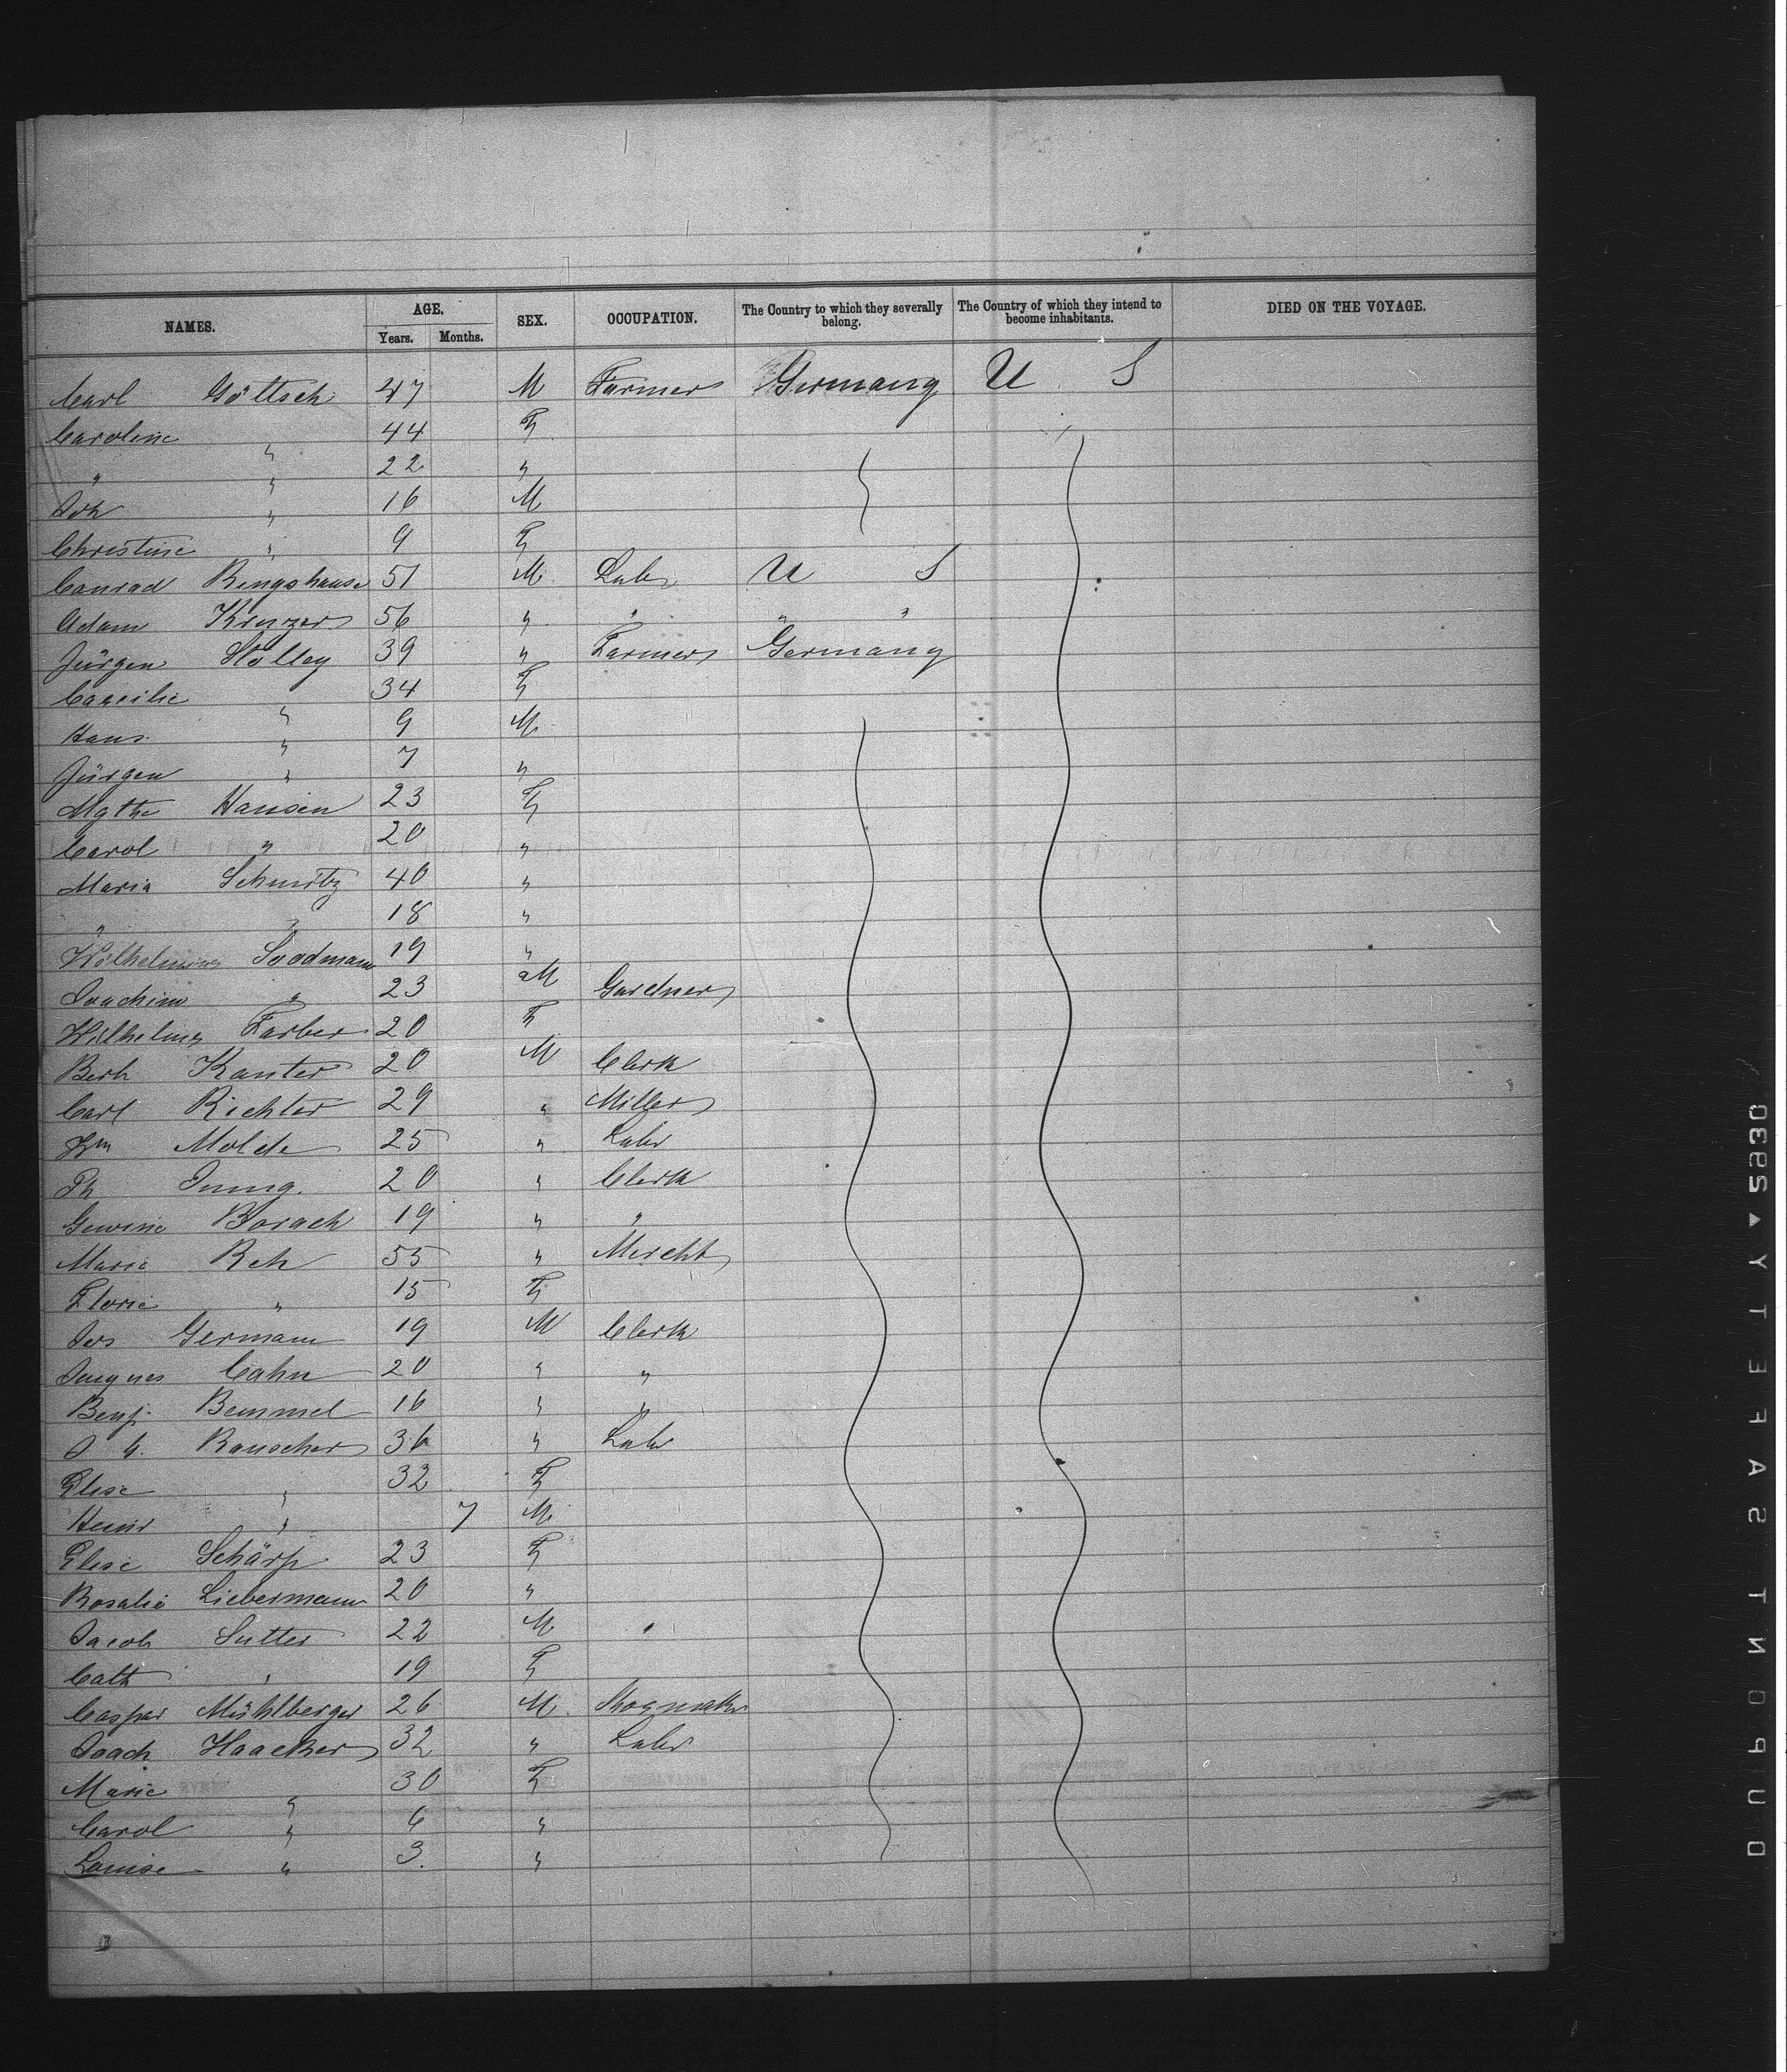 NAMES. AGE. SEX. OCCUPATION. The Country to which they severally belong. The Country of which they intend to become inhabitants. DIED ON THE VOYAGE.
Years. Months.
Carl Göttsch 47 M Farmer Germany U S
Caroline " 44 F
" " 22 "
Joh " 16 M
Christine " 9 F
Conrad Ringshause 51 M Labr U S
Adam Kreuzer 56 " " " "
Jürgen Stolley 39 " Farmer Germany
Caecilie " 34 F
Hans " 9 M
Jürgen " 7 "
Mgthe Hansen 23 F
Carol " 20 "
Maria Schmitz 40 "
" " 18 "
Wilhelmine Soodmann 19 "
Joachim " 23 M Gardner
Wilhelmine Farber 20 F
Berh Kanter 20 M Clerk
Carl Richter 29 " Miller
Wm Molde 25 " Labr
Ph Jung. 20 " Clerk
Borach 19 " "
Marie Reh 55 " Mercht
Florie " 15 F
Jos Germann 19 M Clerk
Jacques Cahn 20 " "
Benj. Bemmel 16 " "
J. G. Rauscher 36 " Labr
Elise " 32 F
Heinr " 7 M
Elise Schärp 23 F
Rosalie Liebermann 20 "
Jacob Sutter 22 M "
Cath " 19 F
Caspar Mühlberger 26 M Shoemaker
Joach Haacker 32 " Labr
Marie " 30 F
Carol " 6 "
Louise " 3. "
DUPONT SAFETY ▲ 25930